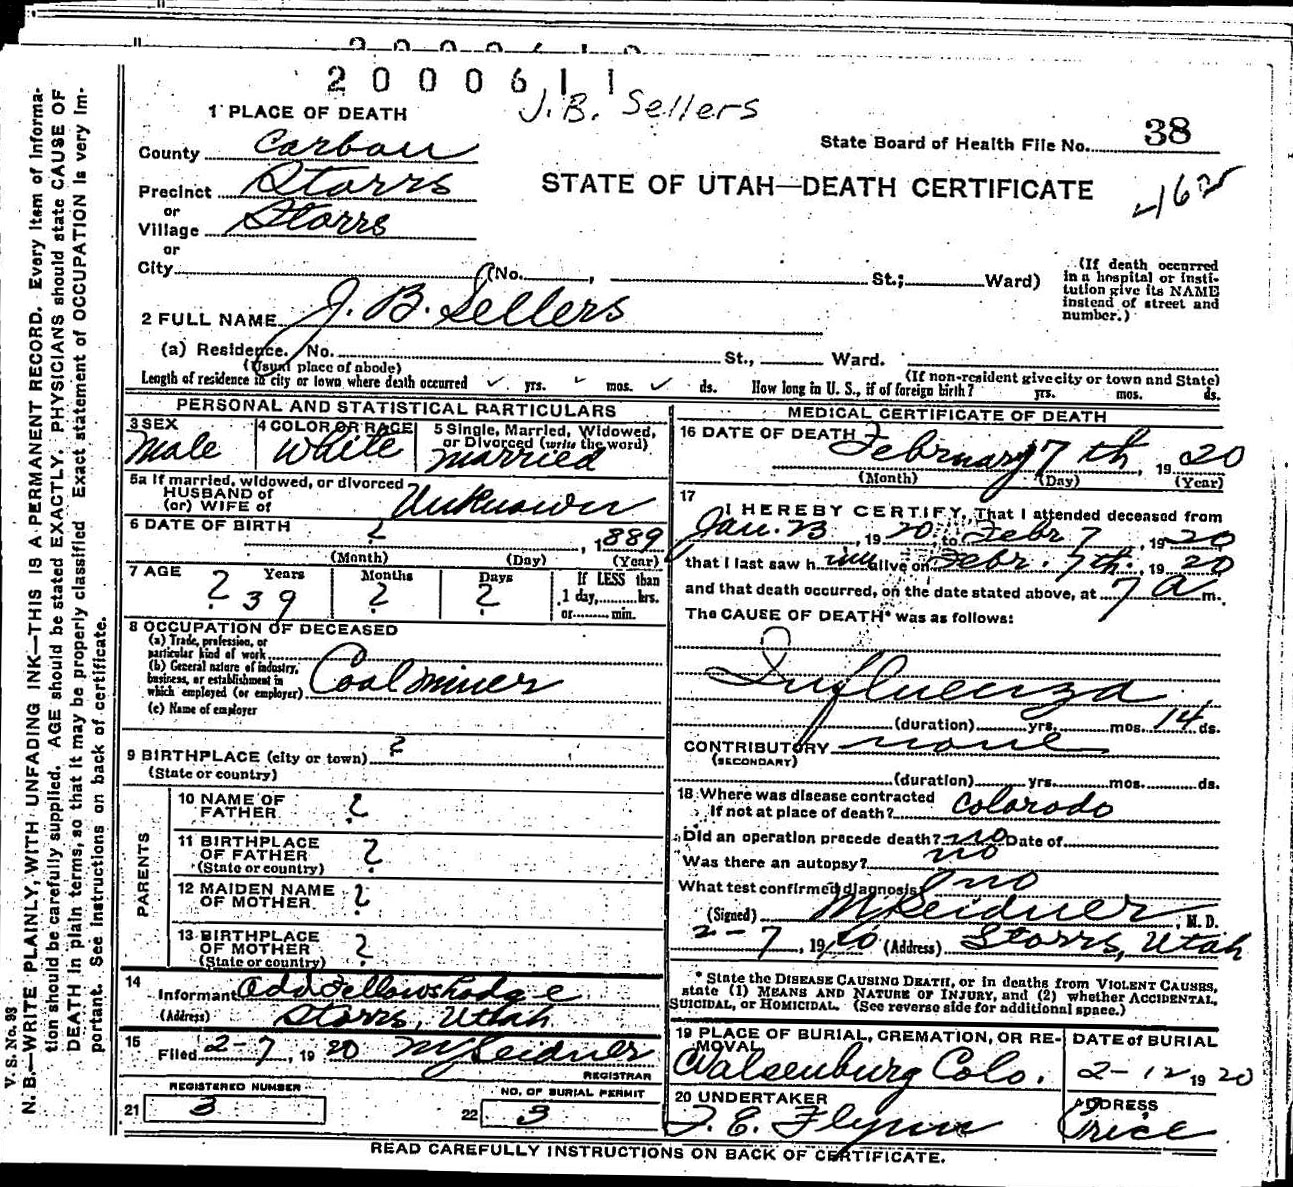 2000611
J. B. Sellers
1 PLACE OF DEATH
State Board of Health File No. 38
County Carbon
STATE OF UTAH—DEATH CERTIFICATE
Precinct Storrs
or
Village Storrs
or
City (No. , St.; Ward)
(If death occurred in a hospital or institution give its NAME instead of street and number.)
2 FULL NAME J. B. Sellers
(a) Residence. No. St., Ward.
(Usual place of abode) (If non-resident give city or town and State)
Length of residence in city or town where death occurred yrs. mos. ds. How long in U. S., if of foreign birth? yrs. mos. ds.
PERSONAL AND STATISTICAL PARTICULARS
3 SEX Male
4 COLOR OR RACE White
5 Single, Married, Widowed, or Divorced (write the word) Married
5a If married, widowed, or divorced
HUSBAND of
(or) WIFE of Unknown
6 DATE OF BIRTH ? , 1889
(Month) (Day) (Year)
7 AGE Years Months Days If LESS than
? 39 ? ? 1 day, hrs.
or min.
8 OCCUPATION OF DECEASED
(a) Trade, profession, or
particular kind of work
(b) General nature of industry,
business, or establishment in
which employed (or employer) Coal miner
(c) Name of employer
9 BIRTHPLACE (city or town) ?
(State or country)
PARENTS
10 NAME OF
FATHER ?
11 BIRTHPLACE
OF FATHER ?
(State or country)
12 MAIDEN NAME
OF MOTHER ?
13 BIRTHPLACE
OF MOTHER ?
(State or country)
14
Informant Odd Fellows Lodge
(Address) Storrs, Utah
15
Filed 2-7, 1920 M Seidner
REGISTRAR
REGISTERED NUMBER
21 3
NO. OF BURIAL PERMIT
22 3
MEDICAL CERTIFICATE OF DEATH
16 DATE OF DEATH February 7th, 1920
(Month) (Day) (Year)
17
I HEREBY CERTIFY, That I attended deceased from
Jan. 23, 1920, to Febr 7, 1920
that I last saw him alive on Febr. 7th. 1920
and that death occurred, on the date stated above, at 7 A m.
The CAUSE OF DEATH* was as follows:
Influenza
(duration) yrs. mos. 14 ds.
CONTRIBUTORY none
(SECONDARY)
(duration) yrs. mos. ds.
18 Where was disease contracted
If not at place of death? Colorado
Did an operation precede death? no Date of
Was there an autopsy? no
What test confirmed diagnosis? no
(Signed) M Seidner, M. D.
2-7, 1920 (Address) Storrs, Utah
* State the DISEASE CAUSING DEATH, or in deaths from VIOLENT CAUSES,
state (1) MEANS AND NATURE OF INJURY, and (2) whether ACCIDENTAL,
SUICIDAL, or HOMICIDAL. (See reverse side for additional space.)
19 PLACE OF BURIAL, CREMATION, OR REMOVAL
Walsenburg Colo.
DATE of BURIAL
2-12 1920
20 UNDERTAKER
J. E. Flynn
ADDRESS
Price
READ CAREFULLY INSTRUCTIONS ON BACK OF CERTIFICATE.
V. S. No. 93
N. B.—WRITE PLAINLY, WITH UNFADING INK—THIS IS A PERMANENT RECORD. Every item of informa-
tion should be carefully supplied. AGE should be stated EXACTLY. PHYSICIANS should state CAUSE OF
DEATH in plain terms, so that it may be properly classified. Exact statement of OCCUPATION is very im-
portant. See instructions on back of certificate.